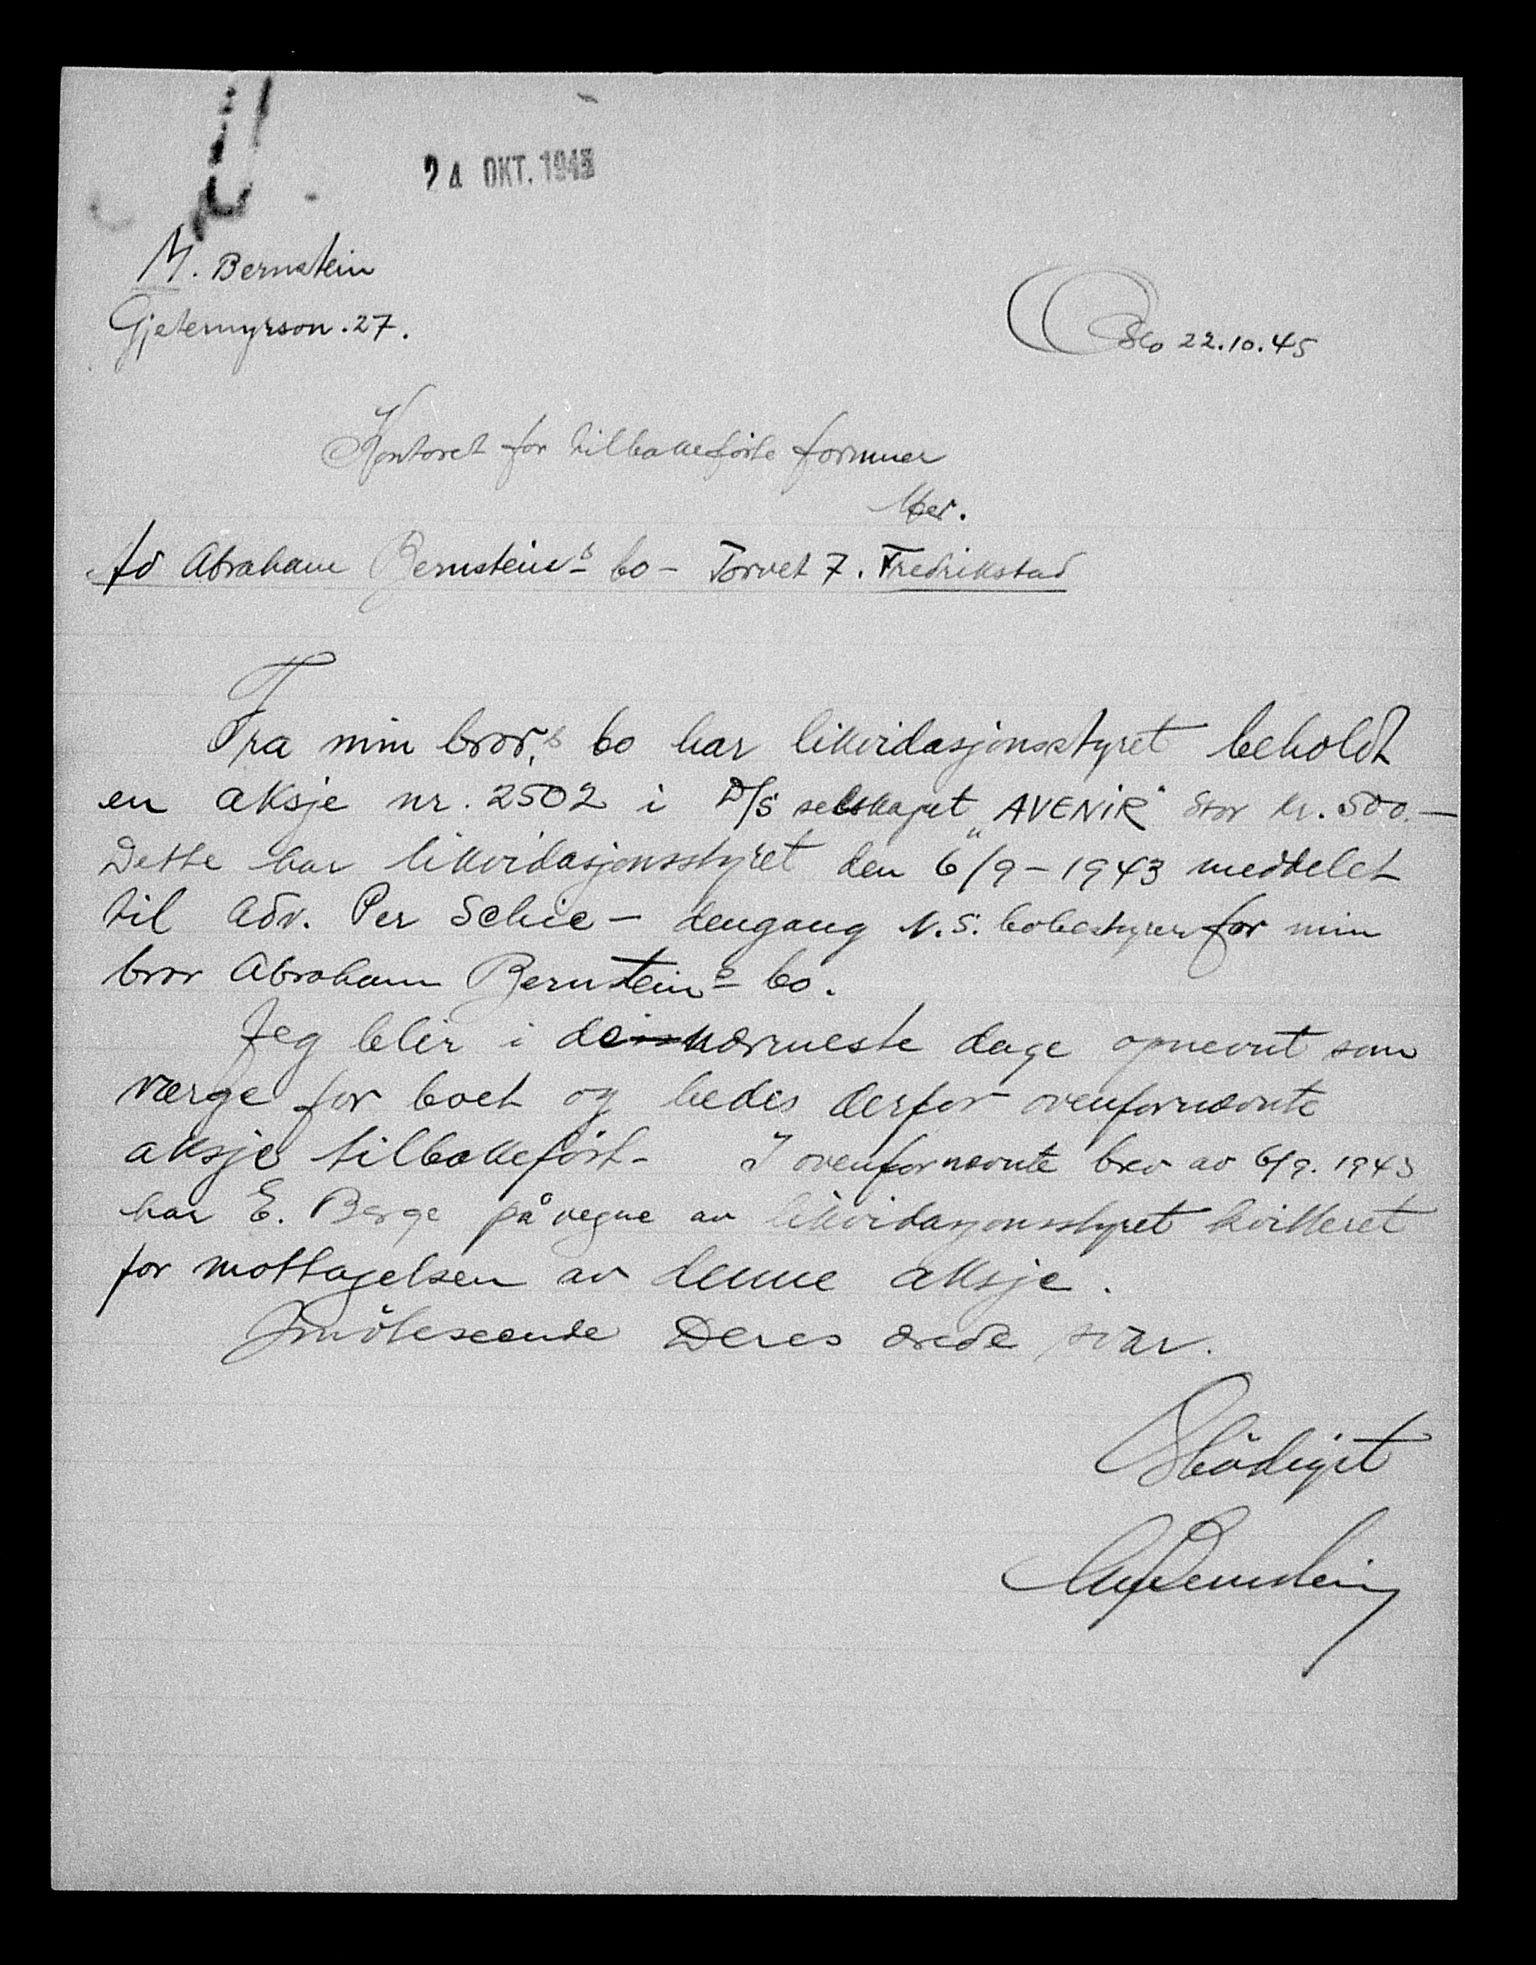 24 OKT. 1945
M. Bernstein
Gjetemyrsvn. 27.
Oslo 22.10.45
Kontoret for tilbakeförte formuer
Her.
fd Abraham Bernsteins bo - Torvet 7. Fredrikstad
Fra min bror,s bo har likvidasjonsstyret beholdt
en aksje nr. 2502 i D/S selskapet „AVENIR" stor kr. 500.—
Dette har likvidasjonsstyret den 6/9 - 1943 meddelet
til adv. Per Schie - dengang N.S. bobestyrer for min
bror Abraham Bernsteins bo.
Jeg blir i de nærmeste dage opnevnt som
værge for boet og bedes derfor ovenfornævnte
aksje tilbakefört - I ovenfornævnte brev av 6/9. 1943
har E. Berge på vegne av likvidasjonsstyret kvitteret
for mottagelsen av denne aksje.
Imöteseende Deres ærede svar.
Ærbödigst
M Bernstein